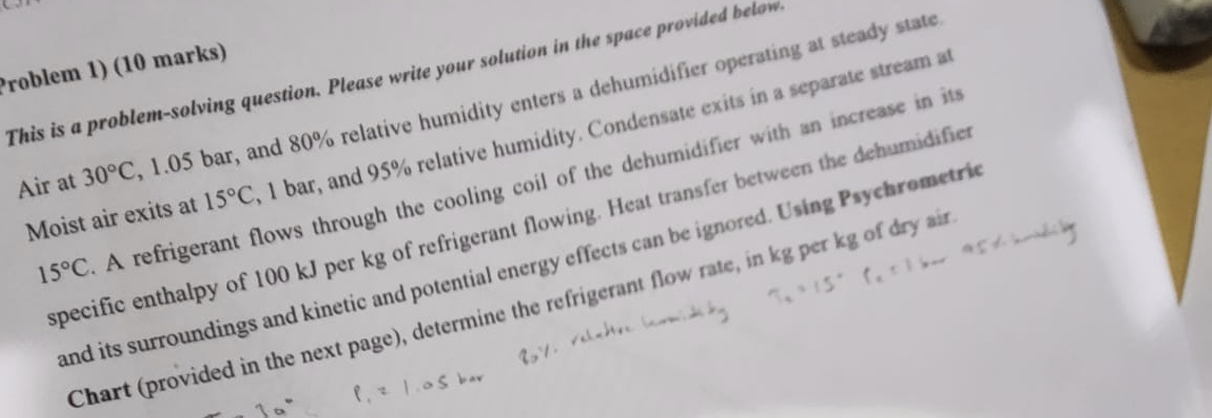 Problem 1) (10 marks)
This is a problem-solving question. Please write your solution in the space provided below.
Air at 30°C, 1.05 bar, and 80% relative humidity enters a dehumidifier operating at steady state.
Moist air exits at 15°C, 1 bar, and 95% relative humidity. Condensate exits in a separate stream at
15°C. A refrigerant flows through the cooling coil of the dehumidifier with an increase in its
specific enthalpy of 100 kJ per kg of refrigerant flowing. Heat transfer between the dehumidifier
and its surroundings and kinetic and potential energy effects can be ignored. Using Psychrometric
Chart (provided in the next page), determine the refrigerant flow rate, in kg per kg of dry air.
P₁ = 1.05 bar 80% relative humidity T₂ = 15° P₂ = 1 bar 95% humidity